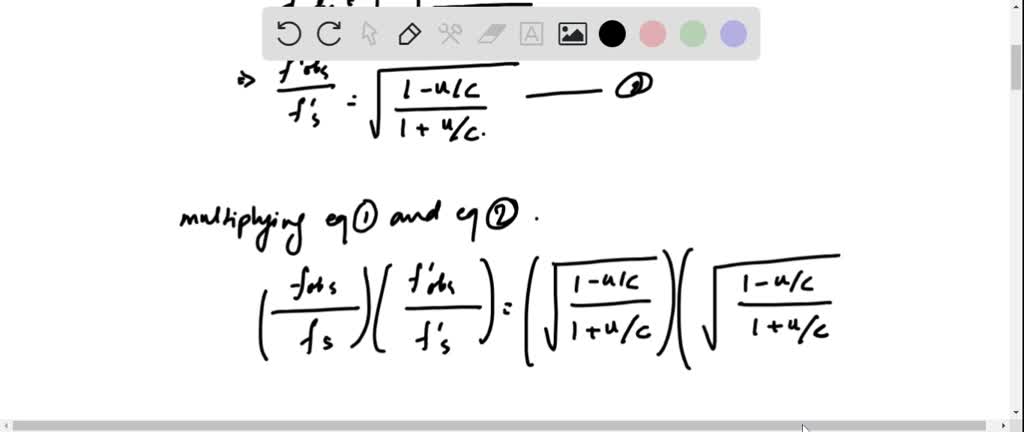 A
=> f'obs / f's = √((1 - u/c) / (1 + u/c.)) —— ②
multiplying eq ① and eq ② .
(fobs / fs) (f'obs / f's) = (√((1 - u/c) / (1 + u/c))) (√((1 - u/c) / (1 + u/c))